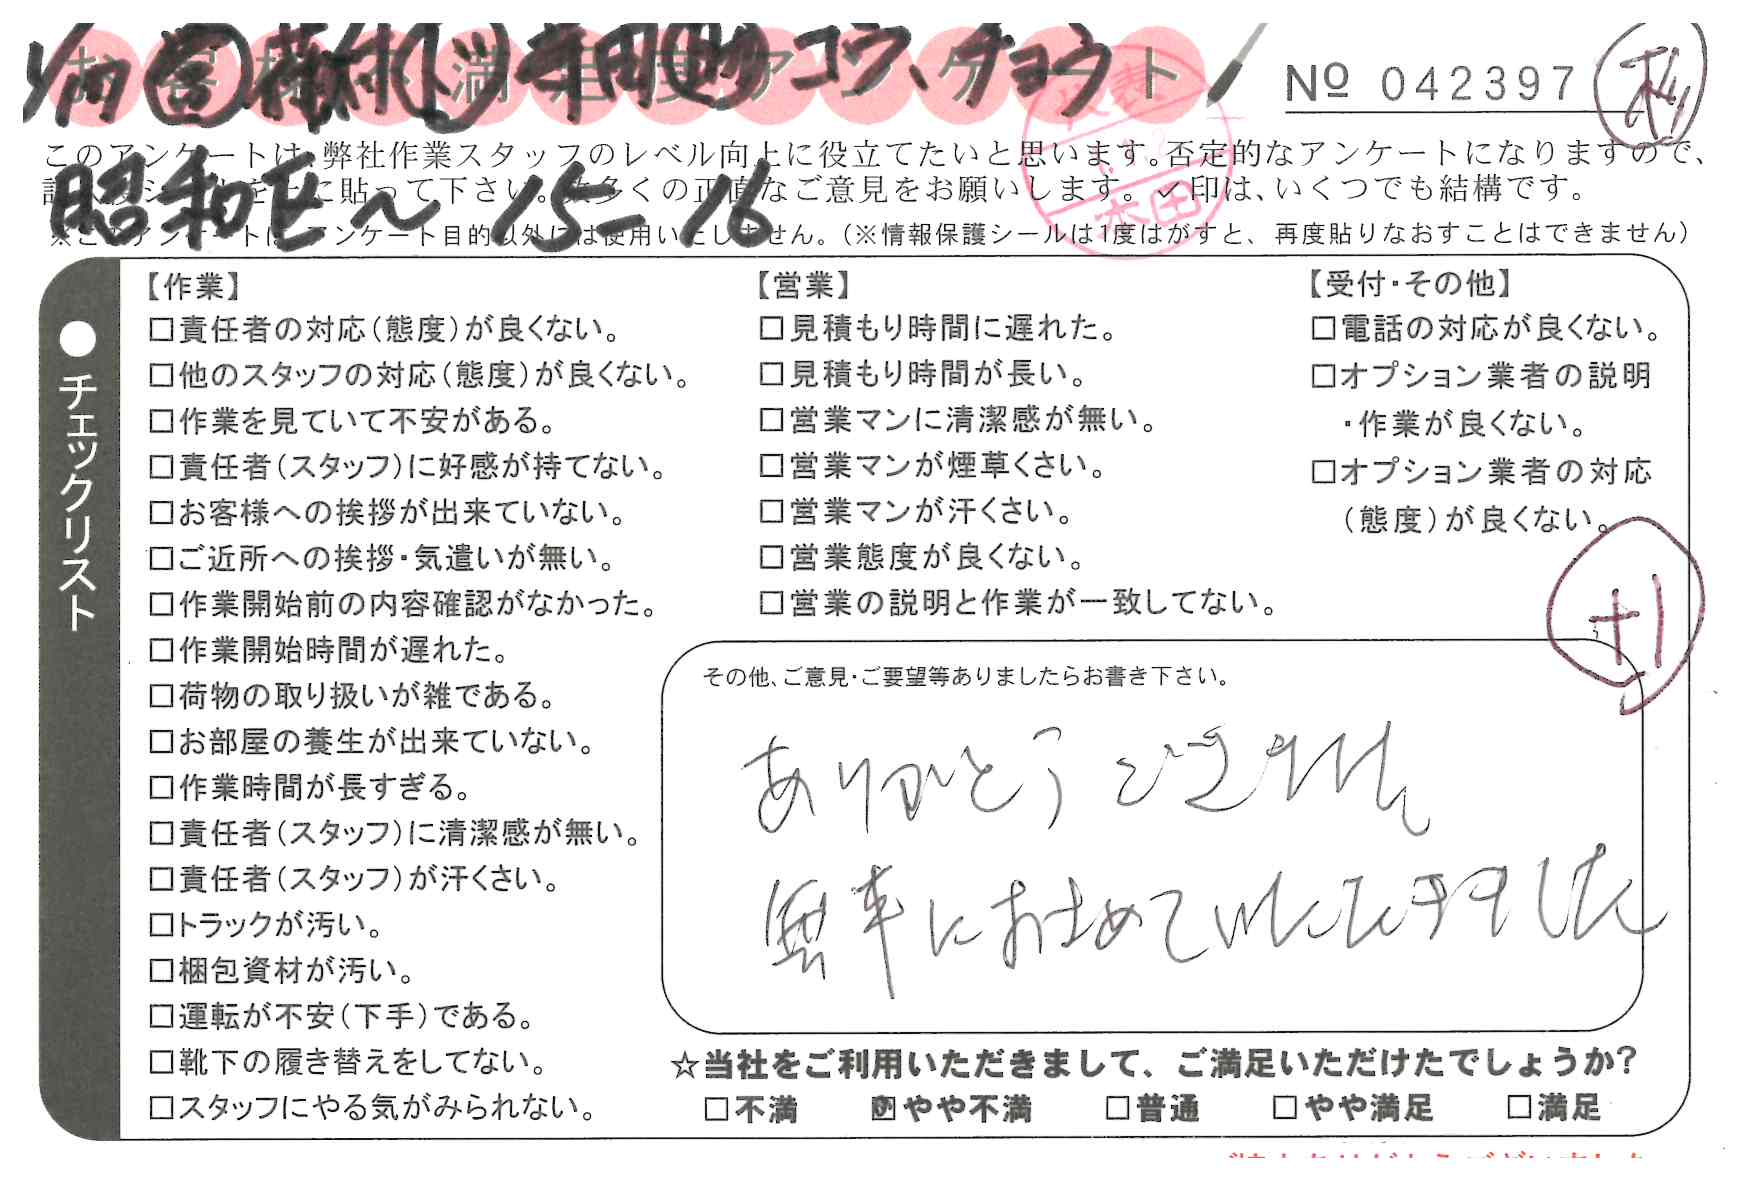 お客様不満足度アンケート
コウ、チョウ
№ 042397
このアンケートは、弊社作業スタッフのレベル向上に役立てたいと思います。否定的なアンケートになりますので、
貼って下さい。数多くの正直なご意見をお願いします。✓印は、いくつでも結構です。
昭和区～ 15-16
※このアンケートは、アンケート目的以外には使用いたしません。（※情報保護シールは1度はがすと、再度貼りなおすことはできません）
●チェックリスト
【作業】
□責任者の対応（態度）が良くない。
□他のスタッフの対応（態度）が良くない。
□作業を見ていて不安がある。
□責任者（スタッフ）に好感が持てない。
□お客様への挨拶が出来ていない。
□ご近所への挨拶・気遣いが無い。
□作業開始前の内容確認がなかった。
□作業開始時間が遅れた。
□荷物の取り扱いが雑である。
□お部屋の養生が出来ていない。
□作業時間が長すぎる。
□責任者（スタッフ）に清潔感が無い。
□責任者（スタッフ）が汗くさい。
□トラックが汚い。
□梱包資材が汚い。
□運転が不安（下手）である。
□靴下の履き替えをしてない。
□スタッフにやる気がみられない。
【営業】
□見積もり時間に遅れた。
□見積もり時間が長い。
□営業マンに清潔感が無い。
□営業マンが煙草くさい。
□営業マンが汗くさい。
□営業態度が良くない。
□営業の説明と作業が一致してない。
【受付・その他】
□電話の対応が良くない。
□オプション業者の説明
・作業が良くない。
□オプション業者の対応
（態度）が良くない。
+1
その他、ご意見・ご要望等ありましたらお書き下さい。
ありがとうございました
無事におさめていただきました
☆当社をご利用いただきまして、ご満足いただけたでしょうか?
□不満 □やや不満 □普通 □やや満足 □満足